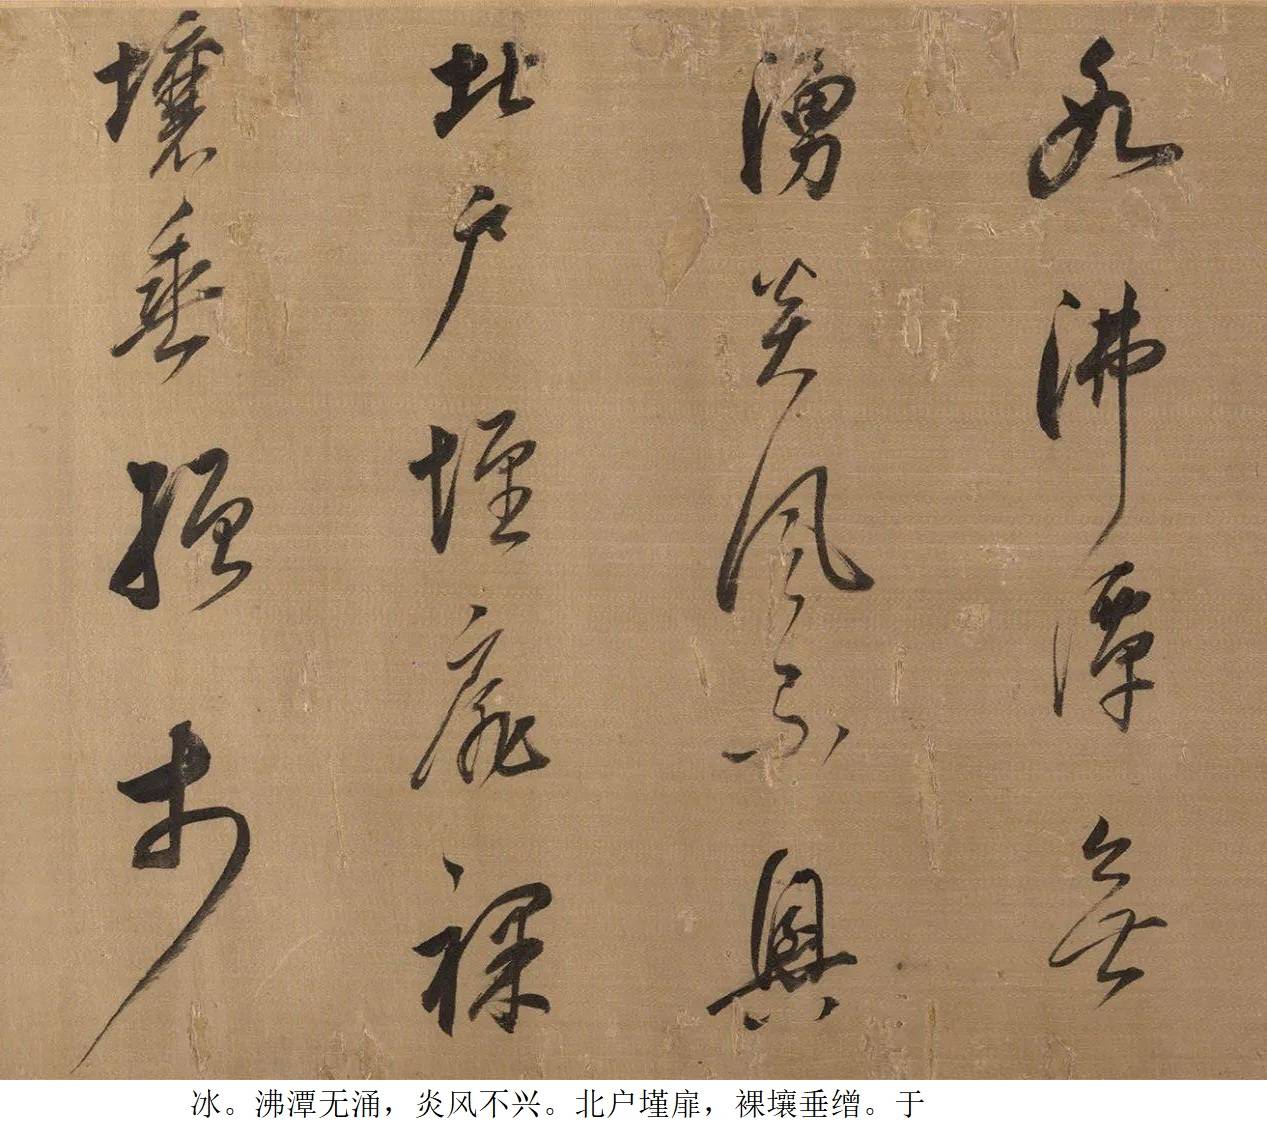 冰沸潭無
湧炎風不興
北户墐扉裸
壤垂繒於
冰。沸潭无涌，炎风不兴。北户墐扉，裸壤垂缯。于